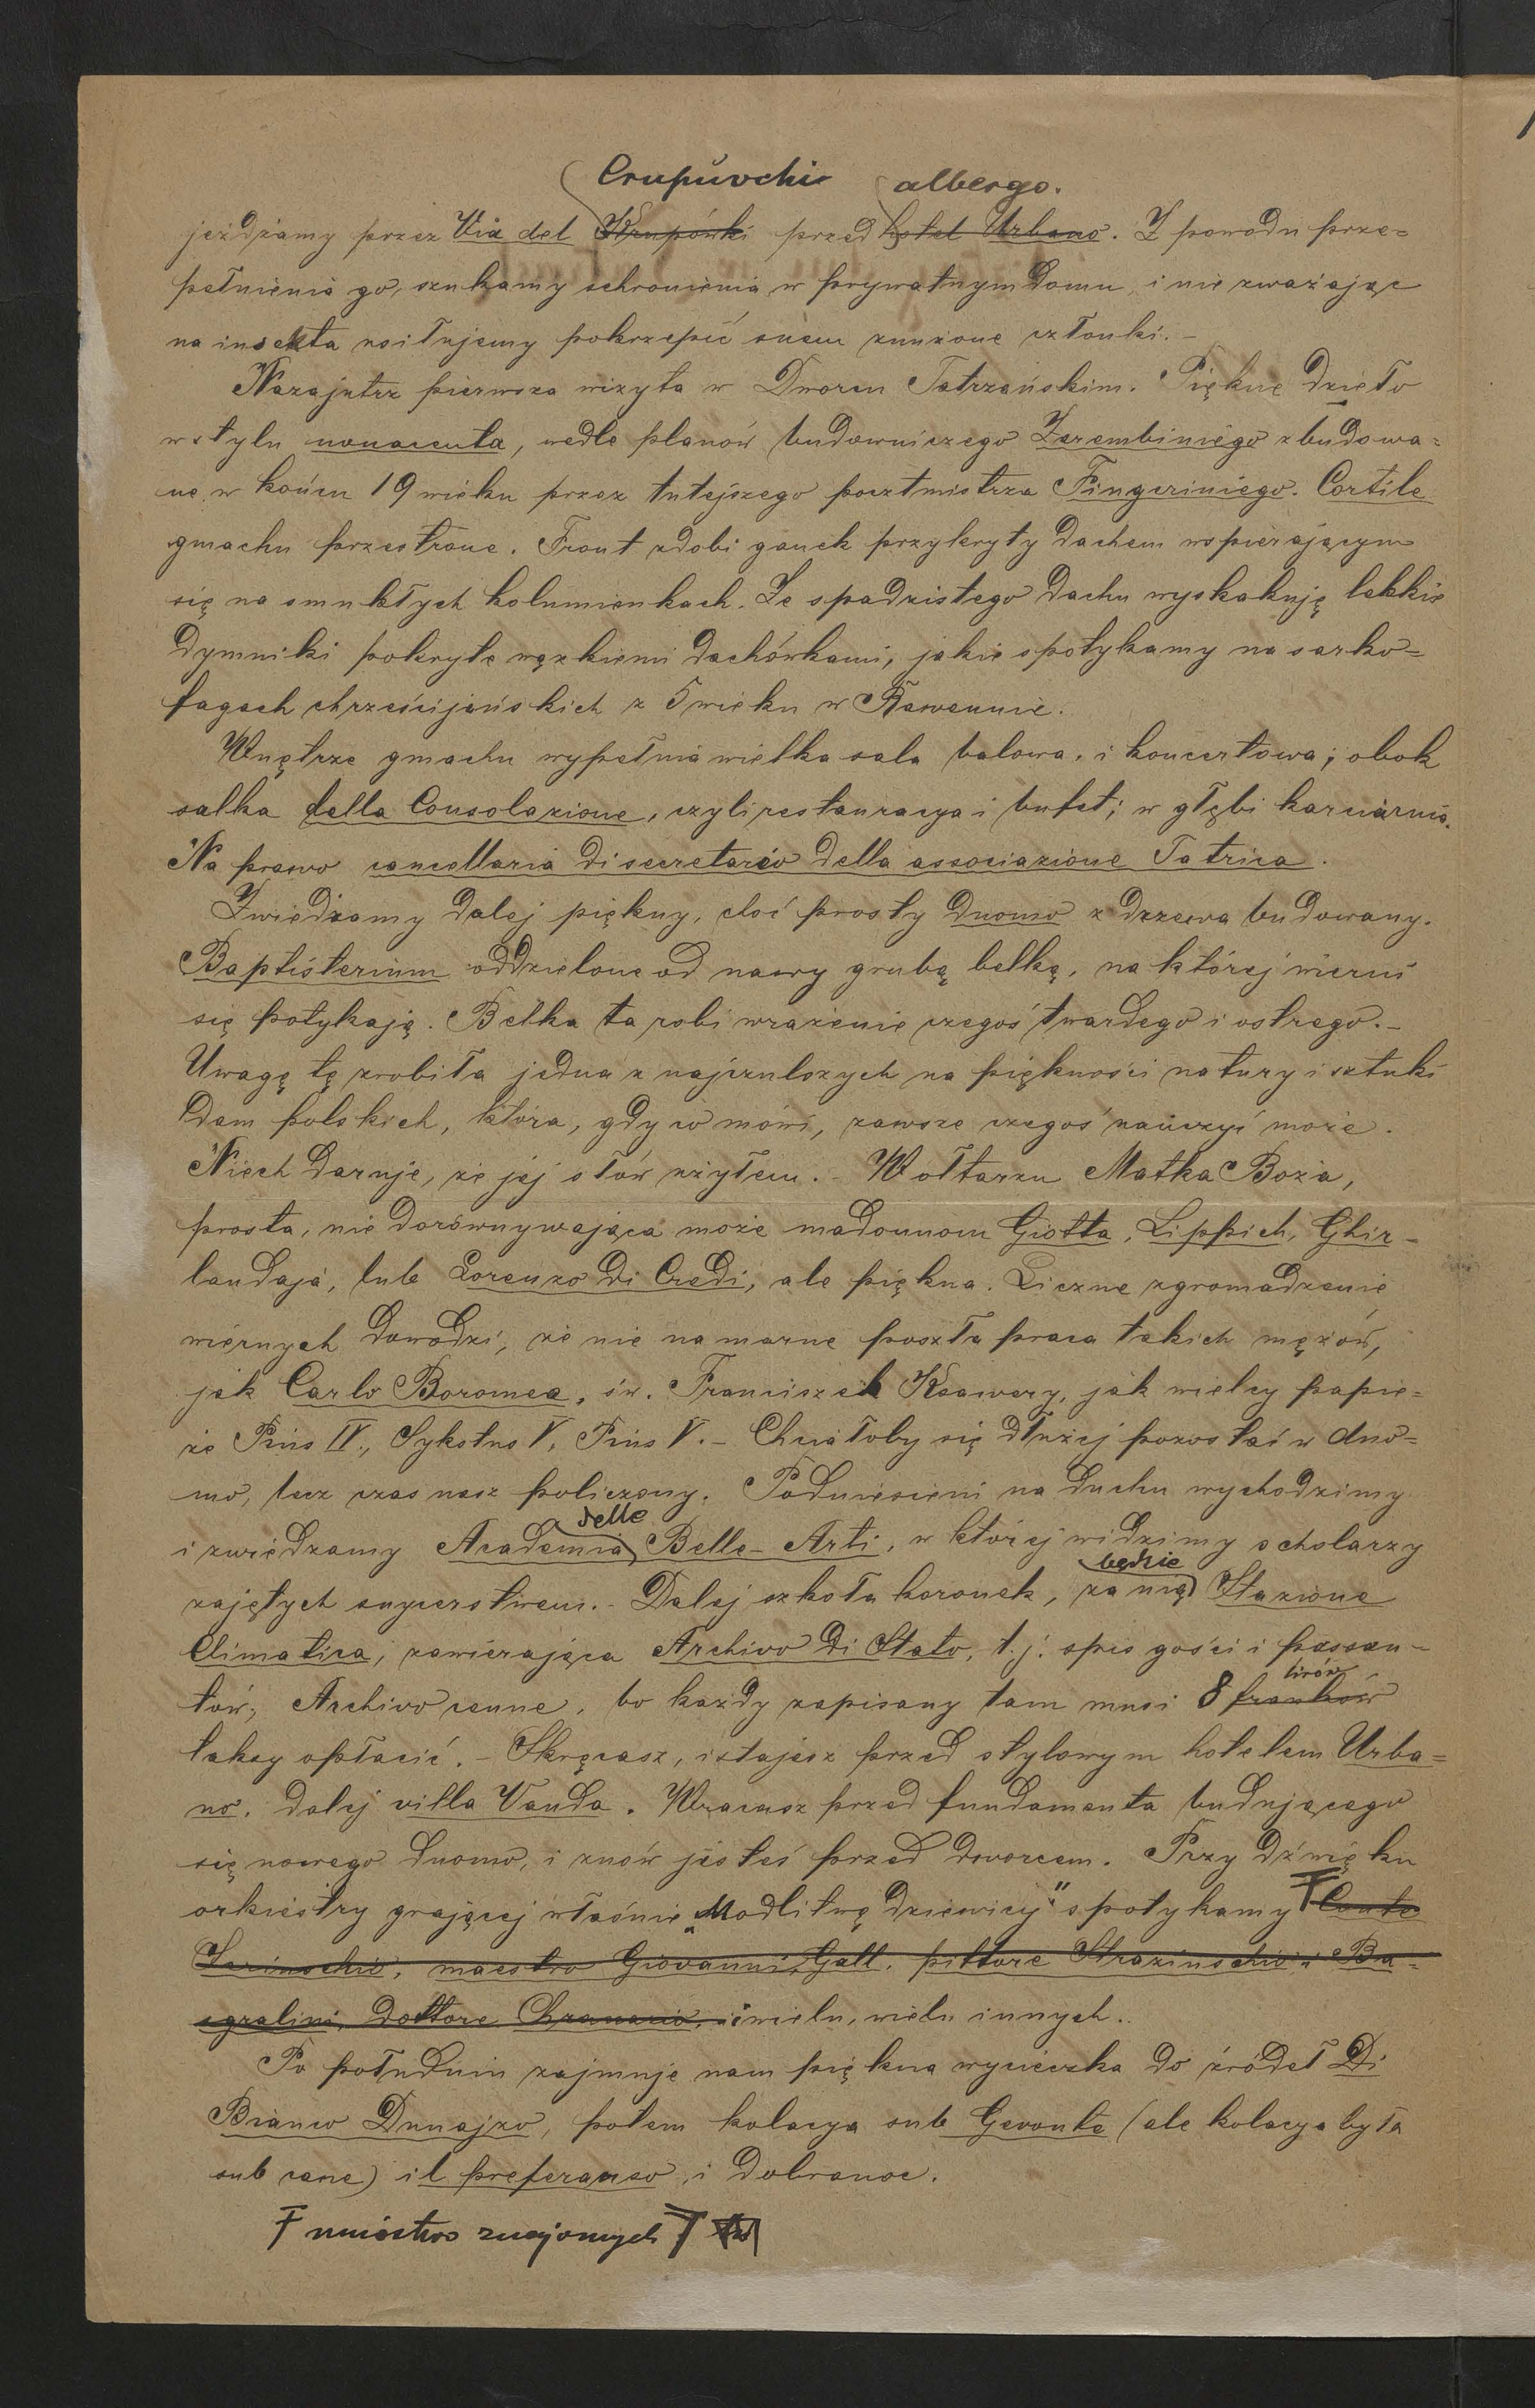 Crupuvchi albergo.
jeżdżamy przez Via del Krupówki przed hotel Urbano. Z powodu prze=
pełnienia go, szukamy schronienia w prywatnym domu, i nie zważając
na insekta usiłujemy pokrzepić snem znużone członki. –
Nazajutrz pierwsza wizyta w Dworcu Tatrzańskim. Piękne dzieło
w stylu novacenta, wedle planów budowniczego Zarembiniego zbudowa=
ne w końcu 19 wieku przez tutejszego pocztmistrza Fingeriniego. Cortile
gmachu przestrone. Front zdobi ganek przykryty dachem wspierającym
się na smukłych kolumienkach. Ze spadzistego dachu wyskakują lekkie
dymniki pokryte wązkiemi dachówkami, jakie spotykamy na sarko=
fagach chrześcijańskich z 5 wieku w Rawennie.
Wnętrze gmachu wypełnia wielka sala balowa, i koncertowa; obok
salka della Consolazione, czyli restauracya i bufet; w głębi karciarnia.
Na prawo cancellaria di secretario della associazione Tatrica.
Zwiedzamy dalej piękny, choć prosty duomo z drzewa budowany.
Baptisterium oddzielone od nawy grubą belką, na której wierni
się potykają. Belka ta robi wrażenie czegoś twardego i ostrego. –
Uwagę tę zrobiła jedna z najczulszych na piękności natury i sztuki
dam polskich, która, gdy co mówi, zawsze czegoś nauczyć może.
Niech daruje, że jej słów użyłem. – W ołtarzu Matka Boża,
prosta, nie dorównywająca może madonnom Giotta, Lippich, Ghir-
landaja, lub Lorenzo di Credi, ale piękna. Liczne zgromadzenie
wiernych dowodzi, że nie na marne poszła praca takich mężów,
jak Carlo Boromea, św. Franciszek Ksawery, jak wielcy papie=
że Pius IV., Sykstus V, Pius V. – Chciałoby się dłużej pozostać w duo=
mo, lecz czas nasz policzony. Podniesieni na duchu wychodzimy
i zwiedzamy Academia delle Belle-Arti, w której widzimy scholarzy
zajętych snycerstwem. – Dalej szkoła koronek, za nią będzie Stazione
Climatica, zawierająca Archivo di Stato, t. j. spis gości i passan-
tów; Archivo cenne, bo każdy zapisany tam musi 8 franków lirów
taksy opłacić. – Skręcasz, i stajesz przed stylowym hotelem Urba=
no, dalej villa Vanda. Wracasz przed fundamenta budującego
się nowego duomo, i znów jesteś przed dworcem. Przy dźwięku
orkiestry grającej właśnie „Modlitwę dziewicy" spotykamy Conte
maestro Giovanni Gall, pittore Strazinschio, i Ba=
gralini, Dottore Chramario, i wielu, wielu innych.
Po południu zajmuje nam piękna wycieczka do źródeł Di
Bianco Dunajzo, potem kolacya sub Gevonte (ale kolacya była
sub cane) il preferanso, i dobranoc.
Ŧ mnóstwo znajomych Ŧ